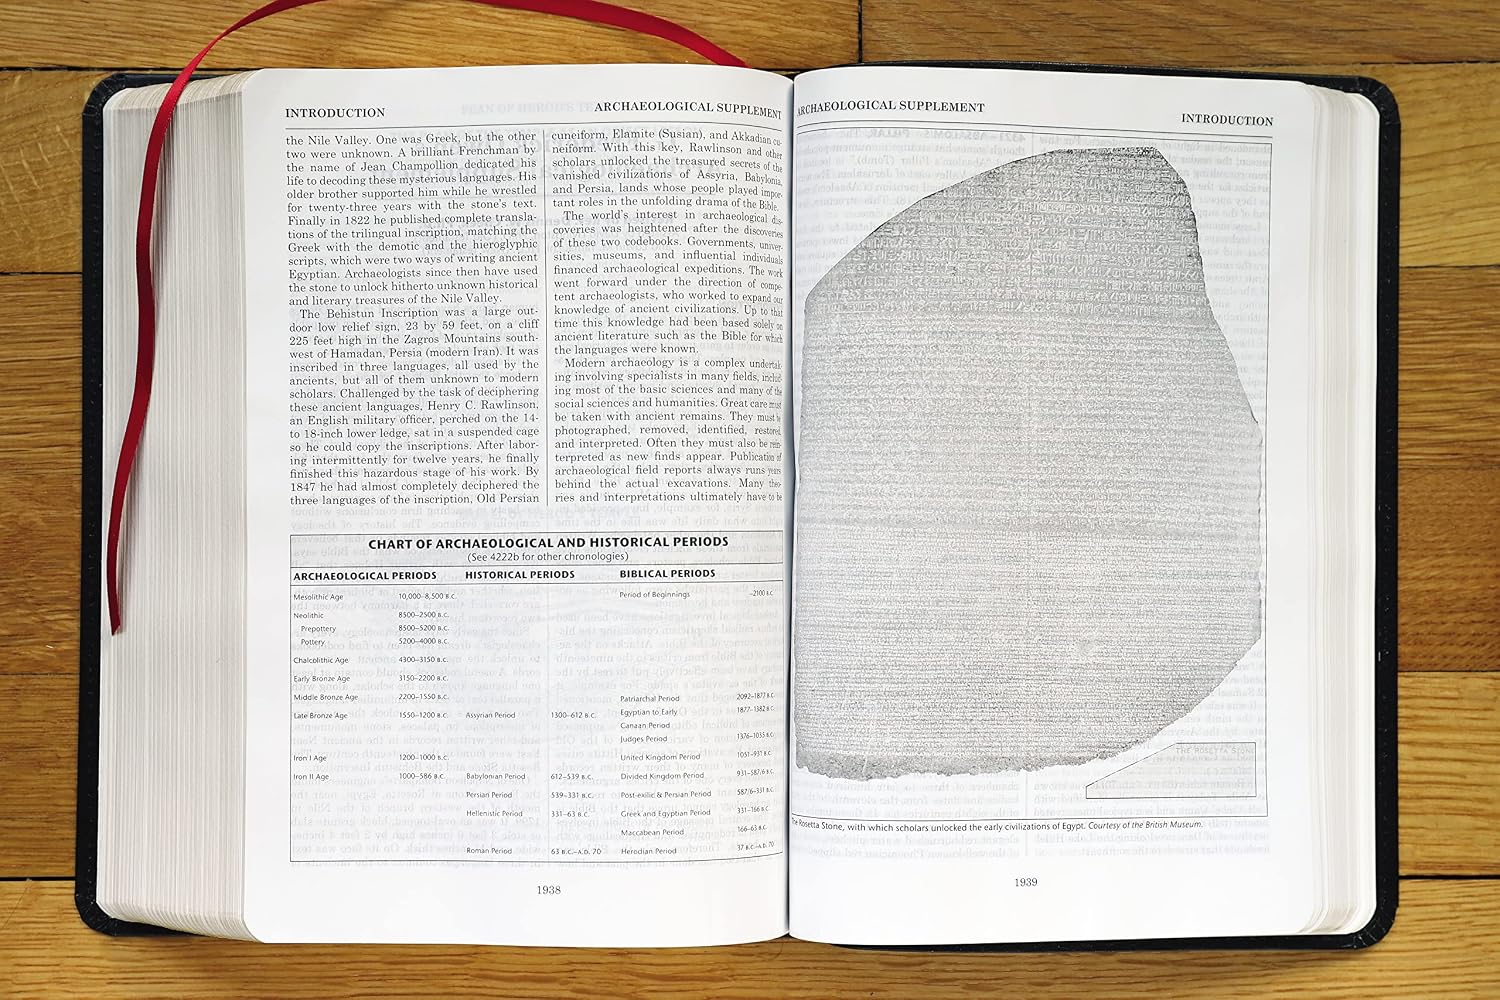 INTRODUCTION
ARCHAEOLOGICAL SUPPLEMENT
the Nile Valley. One was Greek, but the other
two were unknown. A brilliant Frenchman by
the name of Jean Champollion dedicated his
life to decoding these mysterious languages. His
older brother supported him while he wrestled
for twenty-three years with the stone's text.
Finally in 1822 he published complete transla-
tions of the trilingual inscription, matching the
Greek with the demotic and the hieroglyphic
scripts, which were two ways of writing ancient
Egyptian. Archaeologists since then have used
the stone to unlock hitherto unknown historical
and literary treasures of the Nile Valley.
The Behistun Inscription was a large out-
door low relief sign, 23 by 59 feet, on a cliff
225 feet high in the Zagros Mountains south-
west of Hamadan, Persia (modern Iran). It was
inscribed in three languages, all used by the
ancients, but all of them unknown to modern
scholars. Challenged by the task of deciphering
these ancient languages, Henry C. Rawlinson,
an English military officer, perched on the 14-
to 18-inch lower ledge, sat in a suspended cage
so he could copy the inscriptions. After labor-
ing intermittently for twelve years, he finally
finished this hazardous stage of his work. By
1847 he had almost completely deciphered the
three languages of the inscription, Old Persian
cuneiform, Elamite (Susian), and Akkadian cu-
neiform. With this key, Rawlinson and other
scholars unlocked the treasured secrets of the
vanished civilizations of Assyria, Babylonia,
and Persia, lands whose people played impor-
tant roles in the unfolding drama of the Bible.
The world's interest in archaeological dis-
coveries was heightened after the discoveries
of these two codebooks. Governments, univer-
sities, museums, and influential individuals
financed archaeological expeditions. The work
went forward under the direction of compe-
tent archaeologists, who worked to expand our
knowledge of ancient civilizations. Up to that
time this knowledge had been based solely on
ancient literature such as the Bible for which
the languages were known.
Modern archaeology is a complex undertak-
ing involving specialists in many fields, includ-
ing most of the basic sciences and many of the
social sciences and humanities. Great care must
be taken with ancient remains. They must be
photographed, removed, identified, restored,
and interpreted. Often they must also be rein-
terpreted as new finds appear. Publication of
archaeological field reports always runs years
behind the actual excavations. Many theo-
ries and interpretations ultimately have to be
CHART OF ARCHAEOLOGICAL AND HISTORICAL PERIODS
(See 4222b for other chronologies)
ARCHAEOLOGICAL PERIODS HISTORICAL PERIODS BIBLICAL PERIODS
Mesolithic Age 10,000–8,500 B.C. Period of Beginnings –2100 B.C.
Neolithic 8500–2500 B.C.
Prepottery 8500–5200 B.C.
Pottery 5200–4000 B.C.
Chalcolithic Age 4300–3150 B.C.
Early Bronze Age 3150–2200 B.C.
Middle Bronze Age 2200–1550 B.C. Patriarchal Period 2092–1877 B.C.
Late Bronze Age 1550–1200 B.C. Assyrian Period 1300–612 B.C. Egyptian to Early 1877–1382 B.C.
Canaan Period
Judges Period 1376–1035 B.C.
Iron I Age 1200–1000 B.C. United Kingdom Period 1051–931 B.C.
Iron II Age 1000–586 B.C. Babylonian Period 612–539 B.C. Divided Kingdom Period 931–587/6 B.C.
Persian Period 539–331 B.C. Post-exilic & Persian Period 587/6–331 B.C.
Hellenistic Period 331–63 B.C. Greek and Egyptian Period 331–166 B.C.
Maccabean Period 166–63 B.C.
Roman Period 63 B.C.–A.D. 70 Herodian Period 37 B.C.–A.D. 70
1938
ARCHAEOLOGICAL SUPPLEMENT
INTRODUCTION
THE ROSETTA STONE
The Rosetta Stone, with which scholars unlocked the early civilizations of Egypt. Courtesy of the British Museum.
1939